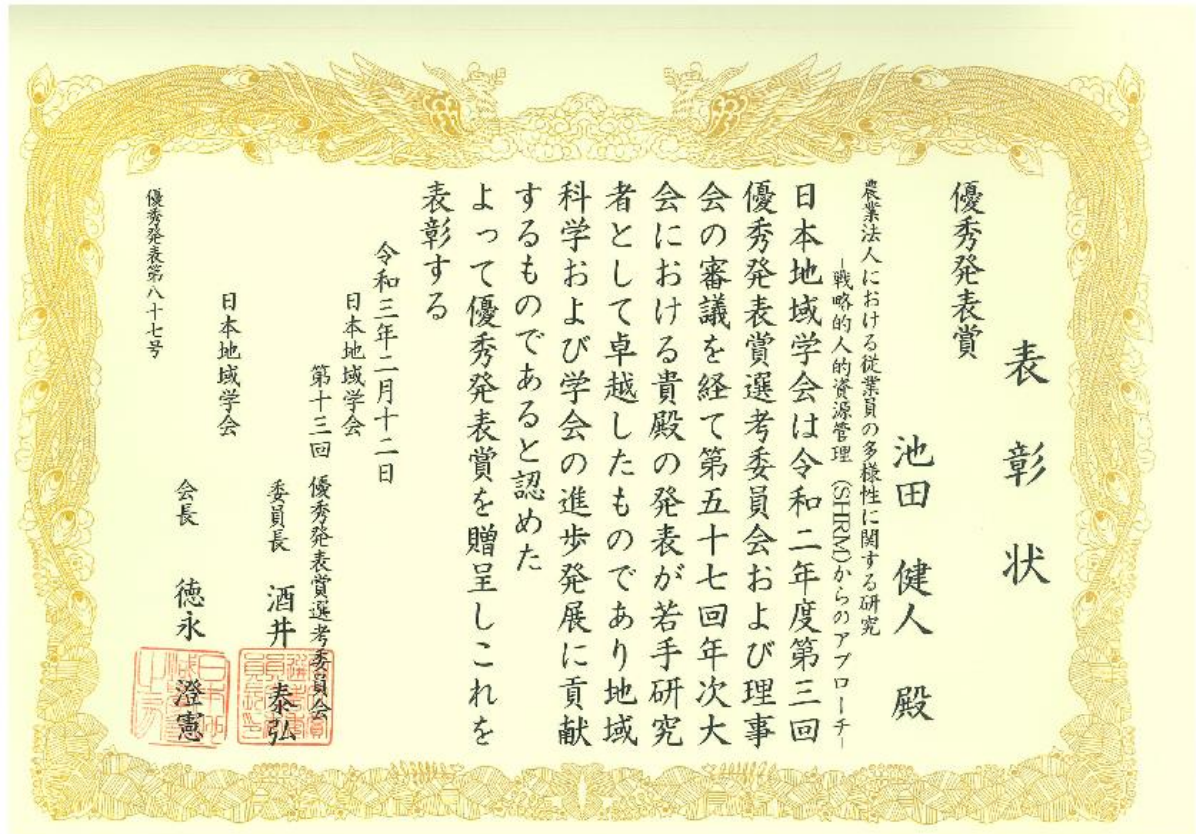 表彰状
優秀発表賞
池田 健人 殿
農業法人における従業員の多様性に関する研究
-戦略的人的資源管理 (SHRM)からのアプローチ-
日本地域学会は令和二年度第三回
優秀発表賞選考委員会および理事
会の審議を経て第五十七回年次大
会における貴殿の発表が若手研究
者として卓越したものであり地域
科学および学会の進歩発展に貢献
するものであると認めた
よって優秀発表賞を贈呈しこれを
表彰する
令和三年二月十二日
日本地域学会
第十三回 優秀発表賞選考委員会
委員長 酒井 泰弘
日本地域学会
会長 徳永 澄憲
優秀発表第八十七号